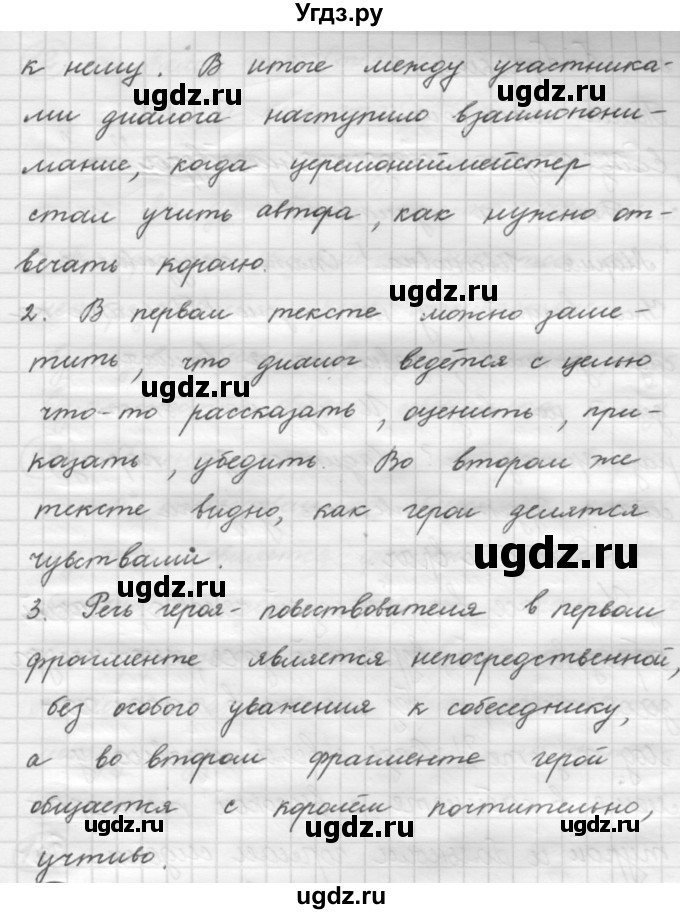 Угдз.ру
к нему. В итоге между участника-
ugdz.ru ugdz.ru
ми диалога наступило взаимопони-
мание, когда церемониймейстер
стал учить автора, как нужно от-
вечать королю.
ugdz.ru
2. В первом тексте можно заме-
тить, что диалог ведётся с целью
ugdz.ru
что-то рассказать, оценить, при-
казать, убедить. Во втором же
тексте видно, как герои делятся
чувствами.
ugdz.ru
ugdz.ru
3. Речь героя-повествователя в первом
фрагменте является непосредственной,
без особого уважения к собеседнику,
а во втором фрагменте герой
общается с королём почтительно,
ugdz.ru ugdz.ru ugdz.ru
учтиво.
ugdz.ru